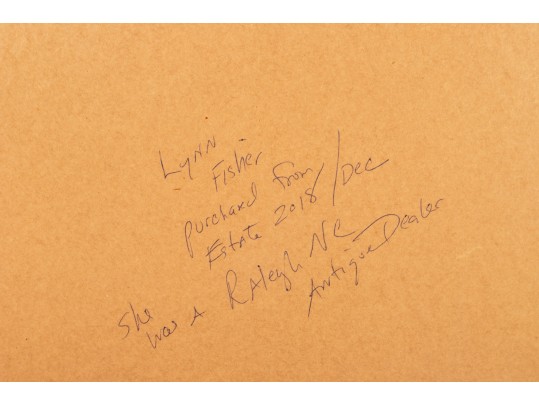 Lynn
Fisher
purchased from
Estate 2018/Dec
She
was a Raleigh NC
Antique Dealer